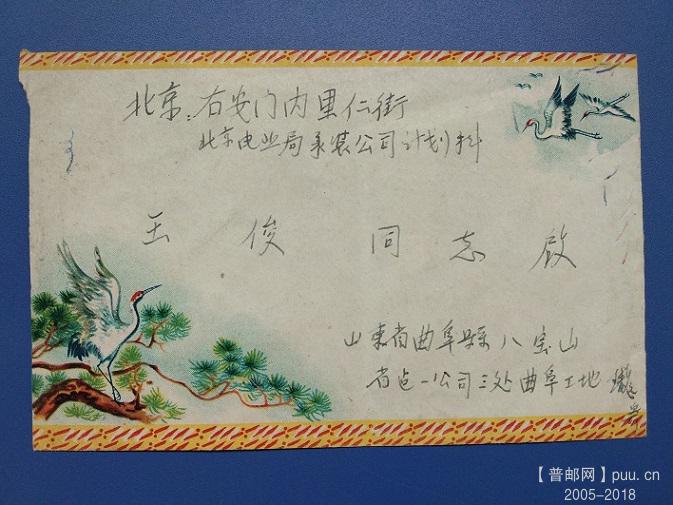 北京:右安门内里仁街
北京电业局承装公司计划科
王俊同志啟
山东省曲阜县八宝山
省电一公司三处曲阜工地
【普邮网】puu.cn
2005-2018